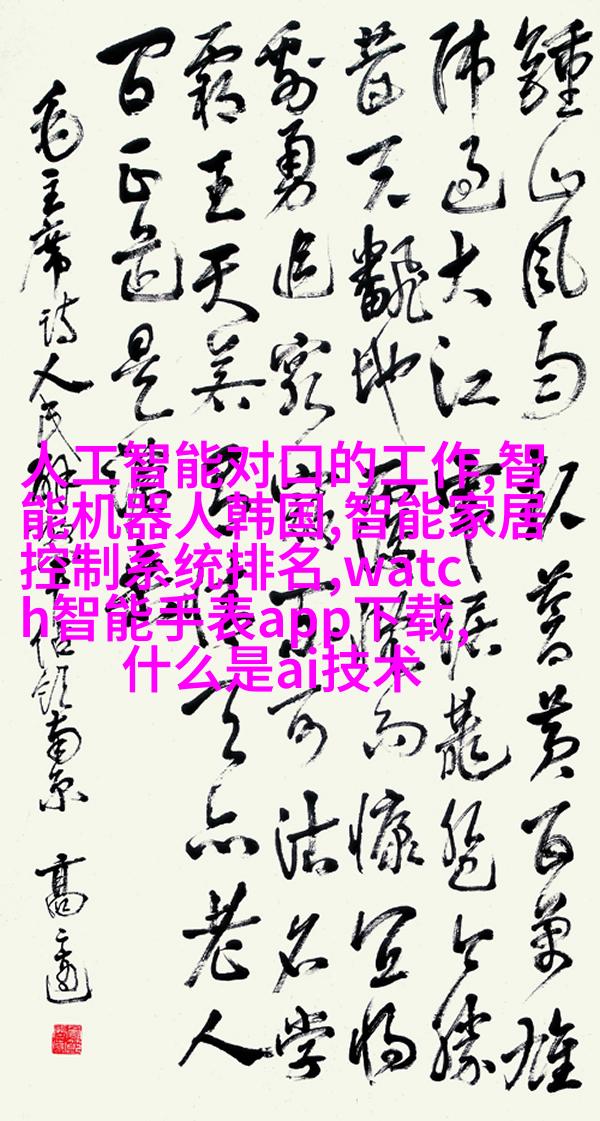 鍾山風雨起蒼黃百萬雄
师过大江虎踞龍盘今勝
昔天翻地覆慨而慷宜将
剩勇追窮寇不可沽名学
霸王天若有情天亦老人
间正道是滄桑
毛主席诗人民解放军占领南京
人工智能对口的工作,智
能机器人韩国,智能家居
控制系统排名,watc
h智能手表app下载,
什么是ai技术